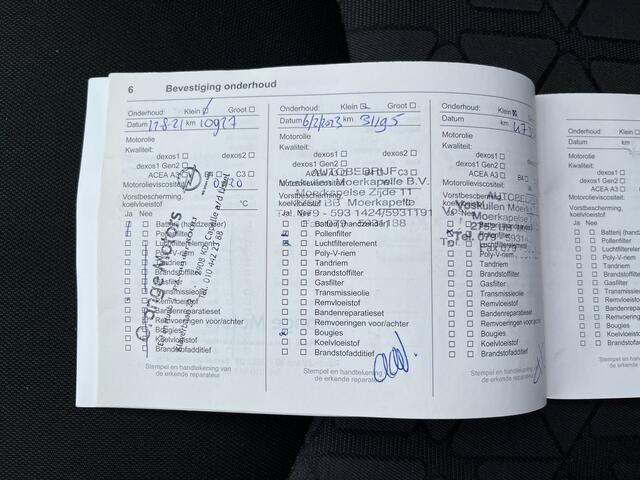 6 Bevestiging onderhoud
Onderhoud: Klein Groot
Datum 17-8-21 km 10927
Motorolie
Kwaliteit:
dexos1 dexos2
dexos1 Gen2
ACEA A3 C3
Motorolieviscositeit 0 20
Vorstbescherming,
koelvloeistof °C
Ja Nee
Batterij (handzender)
Pollenfilter
Luchtfilterelement
Poly-V-riem
Tandriem
Brandstoffilter
Gasfilter
Transmissieolie
Remvloeistof
Bandenreparatieset
Remvoeringen voor/achter
Bougies
Koelvloeistof
Brandstofadditief
Stempel en handtekening van
de erkende reparateur
Orange Motors
Capelle a/d IJssel
Tel. 010 442 23 88
Onderhoud: Klein Groot
Datum 6/2/2023 km 31195
Motorolie
Kwaliteit:
dexos1 dexos2
dexos1 Gen2
ACEA A3 C3
Motorolieviscositeit
Vorstbescherming,
koelvloeistof
Ja Nee
Batterij (handzender)
Pollenfilter
Luchtfilterelement
Poly-V-riem
Tandriem
Brandstoffilter
Gasfilter
Transmissieolie
Remvloeistof
Bandenreparatieset
Remvoeringen voor/achter
Bougies
Koelvloeistof
Brandstofadditief
Stempel en handtekening van
de erkende reparateur
AUTOBEDRIJF
Moerkapelle B.V.
Moerkapelse Zijde 11
Moerkapelle
079 - 593 1424/5931191
Onderhoud: Klein
Datum km
Motorolie
Kwaliteit:
dexos1
dexos1 Gen2
ACEA A3
Motorolieviscositeit
Vorstbescherming,
koelvloeistof
Ja Nee
Pollenfilter
Luchtfilterelement
Poly-V-riem
Tandriem
Brandstoffilter
Gasfilter
Transmissieolie
Remvloeistof
Bandenreparatieset
Remvoeringen voor/achter
Bougies
Koelvloeistof
Brandstofadditief
Stempel en handtekening
de erkende reparateur
Voskuilen Moerkapelle
Onderhoud:
Datum
Motorolie
Kwaliteit:
dexos1
dexos1 Gen2
ACEA A3
Motorolieviscositeit
Vorstbescherming,
koelvloeistof
Ja Nee
Batterij
Pollenfilter
Luchtfilterelement
Poly-V-riem
Tandriem
Brandstoffilter
Gasfilter
Transmissieolie
Remvloeistof
Bandenreparatieset
Remvoeringen
Bougies
Koelvloeistof
Brandstofadditief